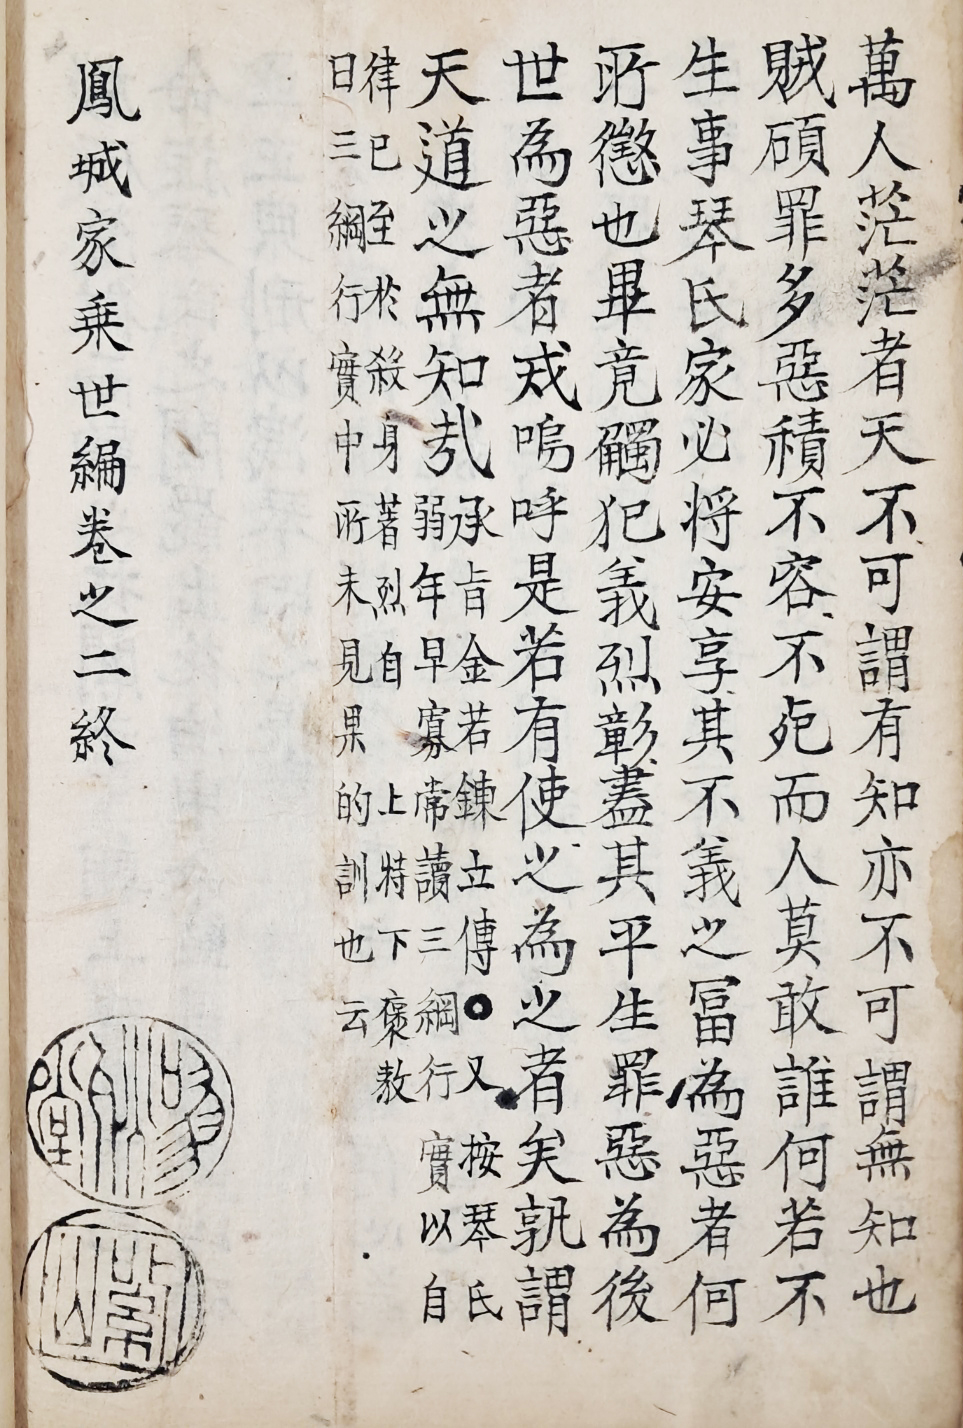 萬人茫茫者天不可謂有知亦不可謂無知也
賊碩罪多惡積不容不死而人莫敢誰何若不
生事琴氏家必將安享其不義之冨為惡者何
所懲也畢竟觸犯義烈彰盡其平生罪惡為後
世為惡者戒嗚呼是若有使之為之者矣孰謂
天道之無知㢤
承旨金若鍊立傳○又按琴氏
弱年早寡常讀三綱行實以自
律已至於殺身著烈自上特下褒敖
日三綱行實中所未見果的訓也云
鳳城家乗世編卷之二終